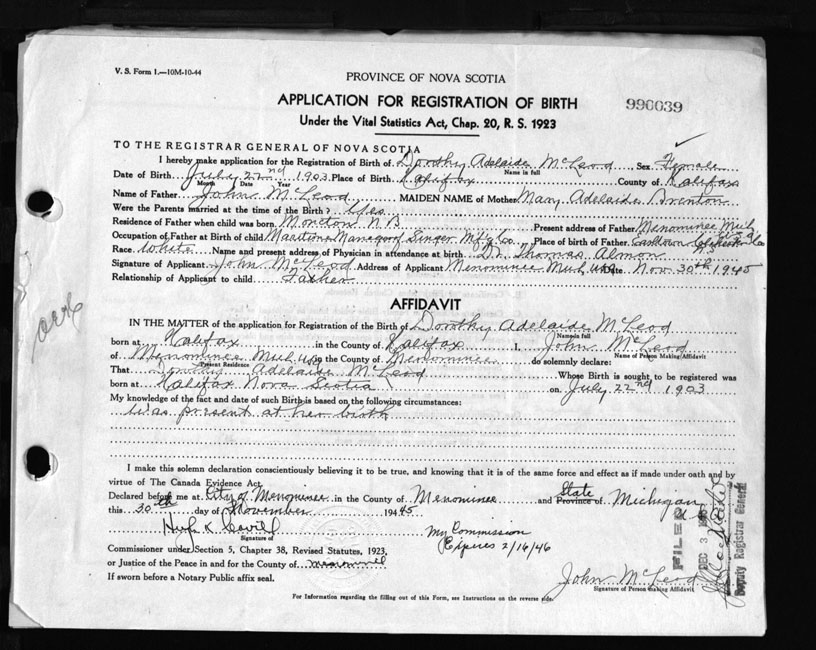 V. S. Form 1.—10M-10-44
PROVINCE OF NOVA SCOTIA
APPLICATION FOR REGISTRATION OF BIRTH
990039
Under the Vital Statistics Act, Chap. 20, R. S. 1923
TO THE REGISTRAR GENERAL OF NOVA SCOTIA
I hereby make application for the Registration of Birth of Dorothy Adelaide McLeod Sex Female
Name in full
Date of Birth July 22nd 1903 Place of Birth Halifax County of Halifax
Month Date Year
Name of Father John McLeod MAIDEN NAME of Mother Mary Adelaide Brenton
Were the Parents married at the time of the Birth? Yes
Residence of Father when child was born Moncton N B Present address of Father Menominee Mich
Occupation of Father at Birth of child Maritime Manager Singer Mfg Co. Place of birth of Father
Race White Name and present address of Physician in attendance at birth Dr. Thomas Almon
Signature of Applicant John McLeod Address of Applicant Menominee Mich USA Date Nov 30th 1945
Relationship of Applicant to child Father
AFFIDAVIT
IN THE MATTER of the application for Registration of the Birth of Dorothy Adelaide McLeod
Name in full
born at Halifax in the County of Halifax I, John McLeod
Name of Person Making Affidavit
of Menominee Mich USA in the County of Menominee do solemnly declare:
Present Residence
That Dorothy Adelaide McLeod Whose Birth is sought to be registered was
born at Halifax Nova Scotia on July 22nd 1903
My knowledge of the fact and date of such Birth is based on the following circumstances:
Was present at her birth
I make this solemn declaration conscientiously believing it to be true, and knowing that it is of the same force and effect as if made under oath and by
virtue of The Canada Evidence Act.
Declared before me at City of Menominee in the County of Menominee and State Province of Michigan
this 30th day of November 1945
Hugh K
My Commission
Expires 2/16/46
Signature of
Commissioner under Section 5, Chapter 38, Revised Statutes, 1923,
or Justice of the Peace in and for the County of Menominee
If sworn before a Notary Public affix seal.
John McLeod
Signature of Person Making Affidavit
For Information regarding the filling out of this Form, see Instructions on the reverse side.
FILED
DEC 3
Deputy Registrar General